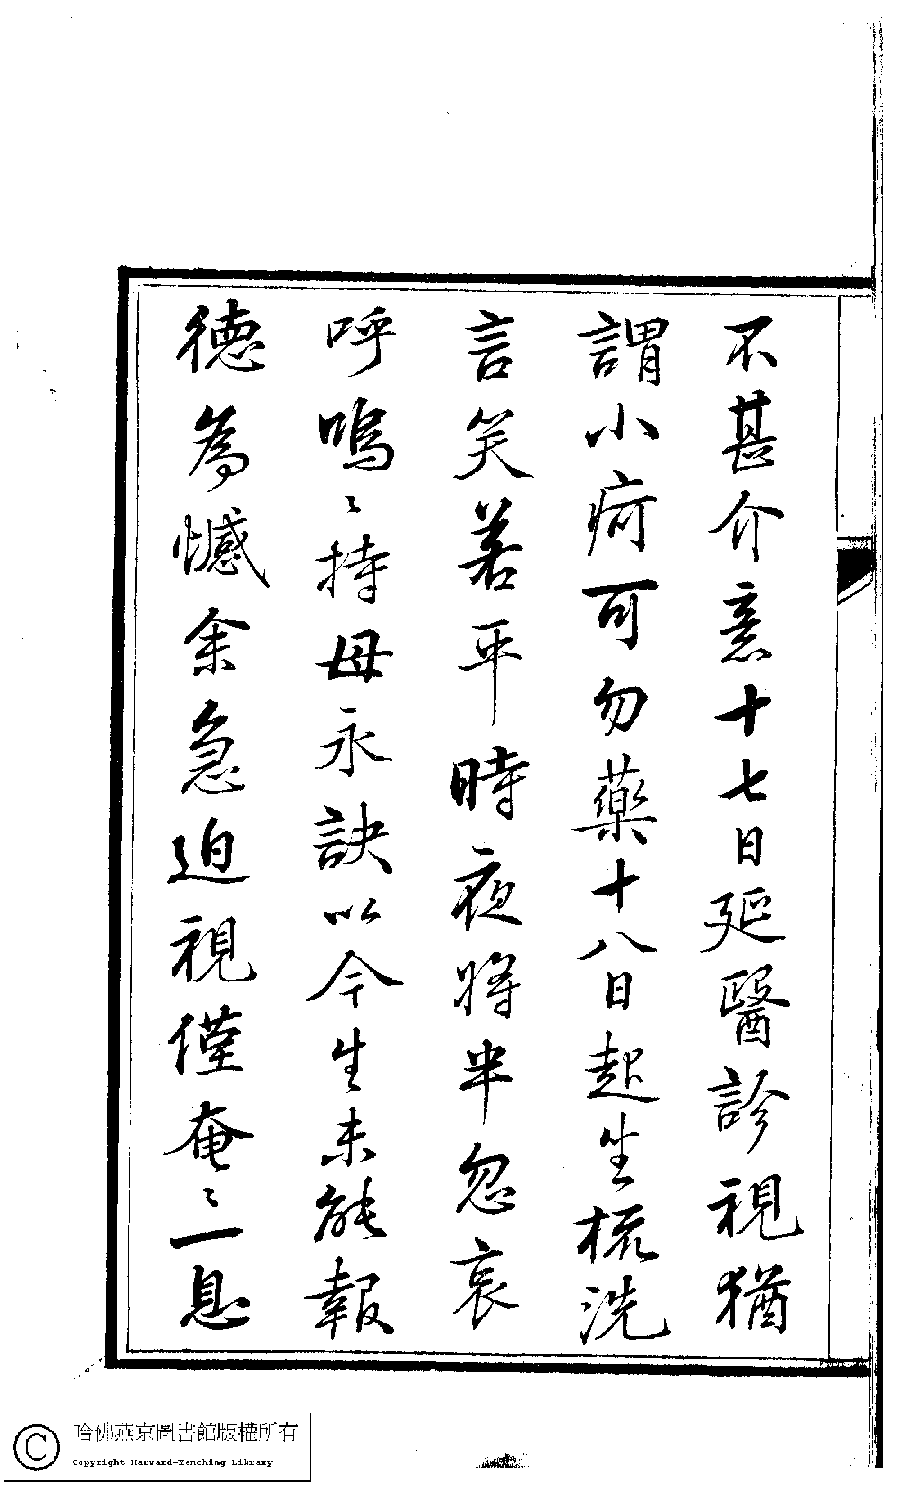 不甚介意十七日延醫診視猶
謂小疴可勿藥十八日起坐梳洗
言笑若平時夜將半忽哀
呼嗚〻持母永訣以今生未能報
德為憾余急迫視僅奄〻一息
哈佛燕京圖書館版權所有
Copyright Harvard-Yenching Library